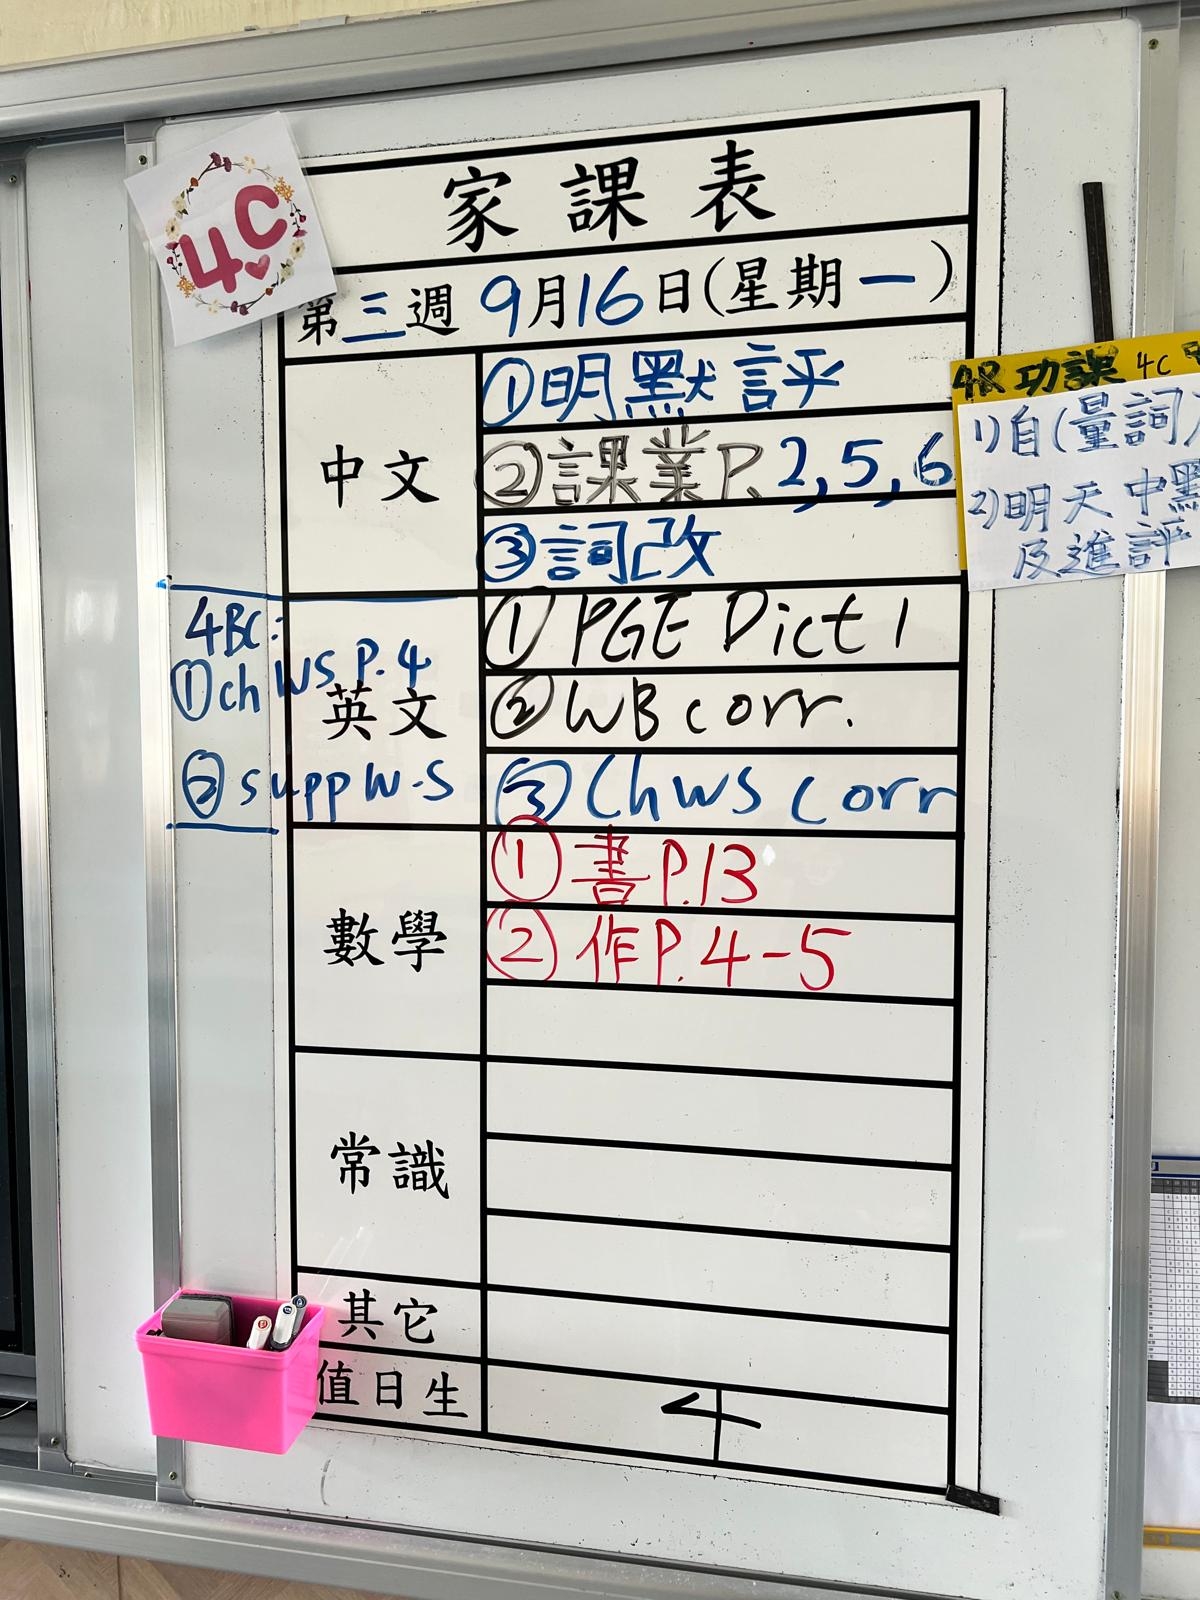 4C
家課表
第三週 9月16日(星期一)
中文
①明默評
②課業P.2,5,6
③詞改
4BC:
①ch WS P.4
②supp W.S
英文
① PGE Dict 1
② WB corr.
③ Ch WS corr
數學
① 書P.13
② 作P.4-5
常識
其它
值日生
4
功課 4C
1)自(量詞)
2)明天中默
及進評